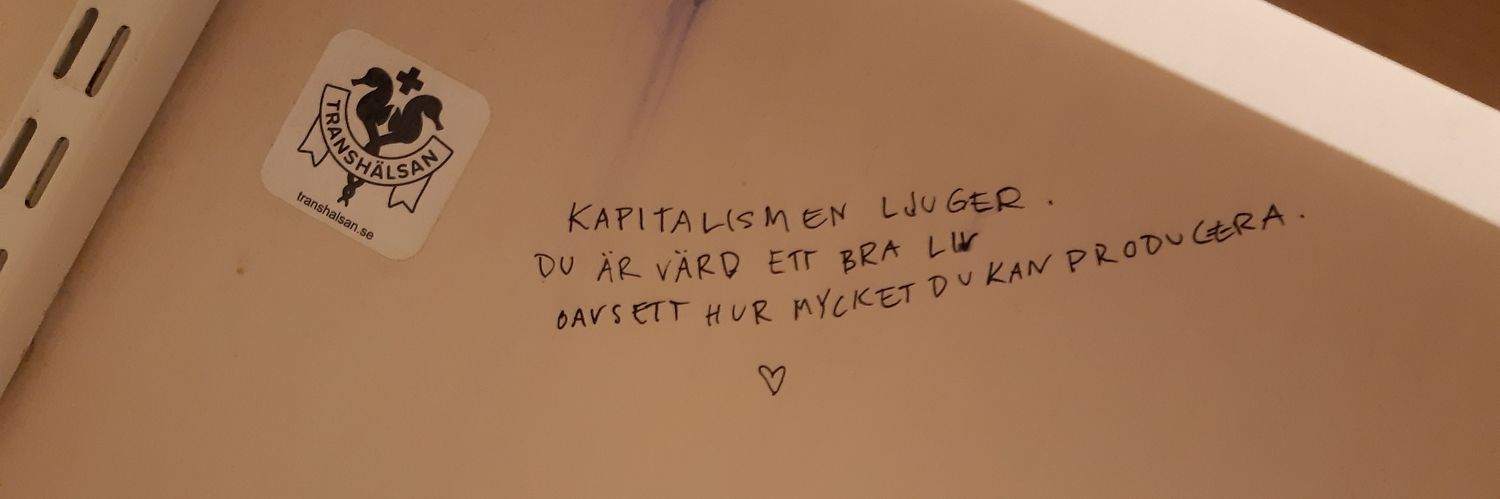 TRANSHÄLSAN
transhalsan.se
KAPITALISMEN LJUGER.
DU ÄR VÄRD ETT BRA LIV
OAVSETT HUR MYCKET DU KAN PRODUCERA.